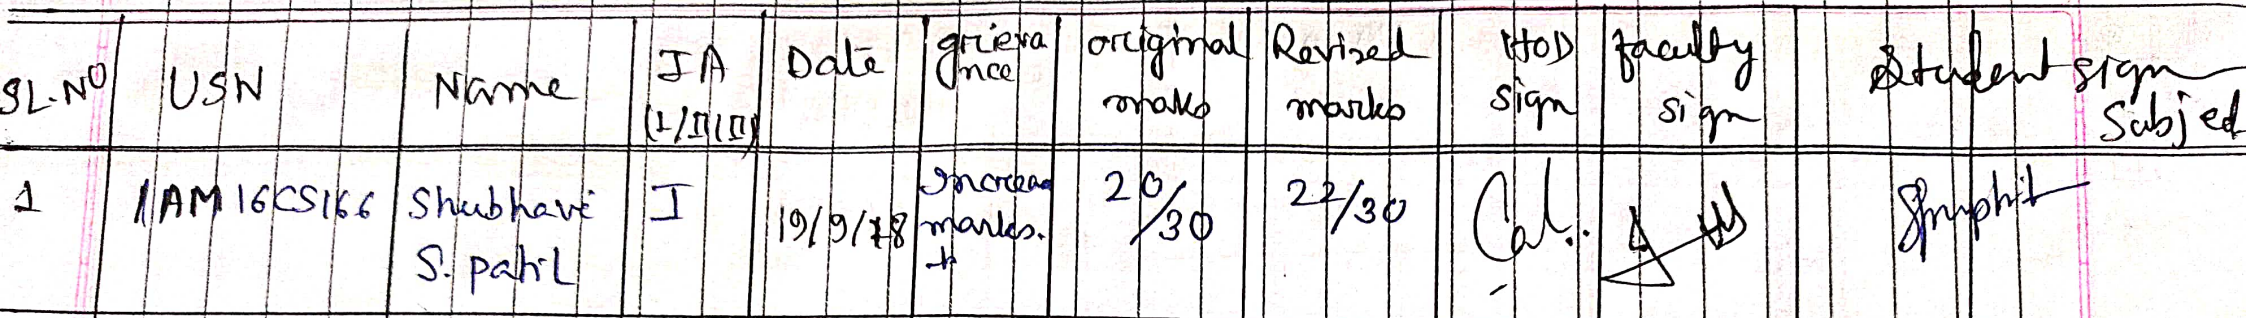 SL.NO USN Name IA (I/II/III) Date grieva nce original maks Revised marks HOD sign faculty sign Student sign Subjed
1 1AM16CS166 Shubhavi S. patil I 19/9/18 Increase marks. 20/30 22/30